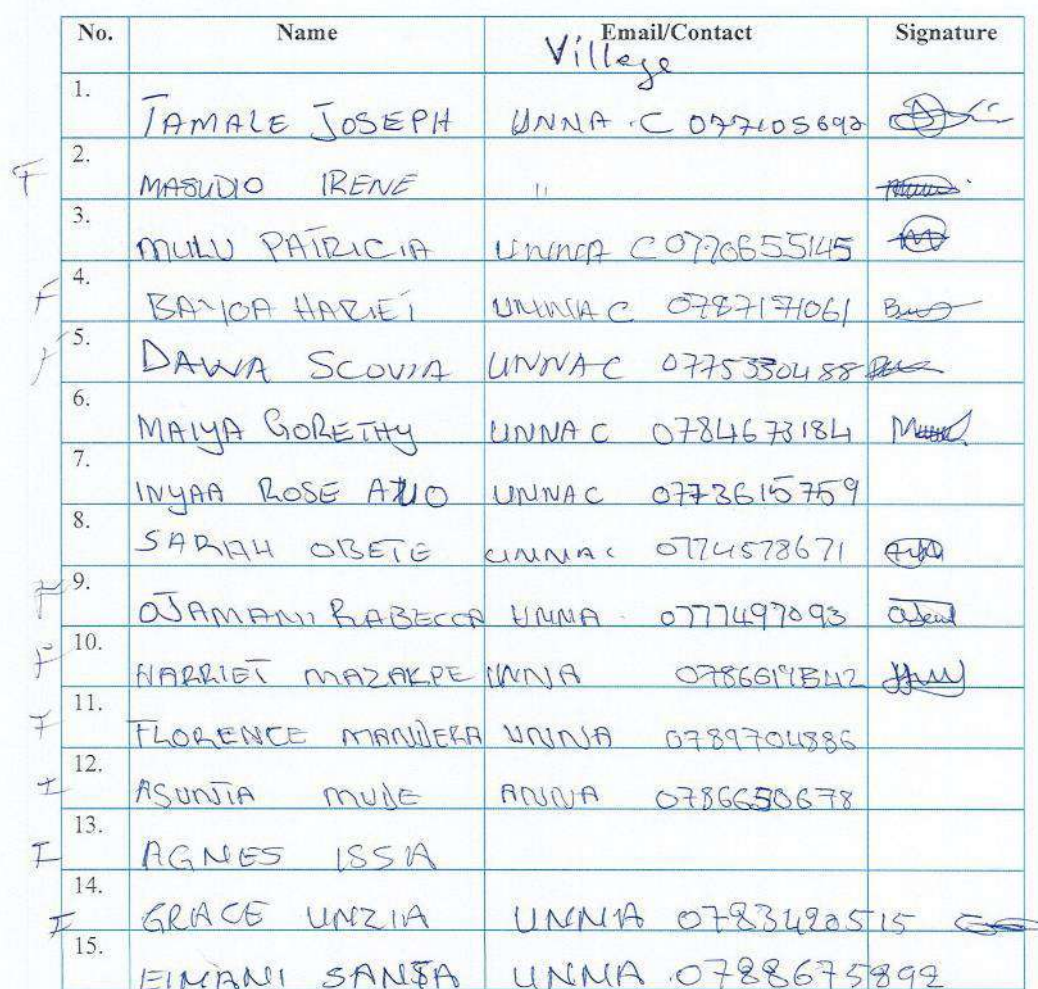 No. Name Email/Contact Signature
Village
1. TAMALE JOSEPH UNNA C 077105692
F 2. MASUDIO IRENE "
3. MULU PATRICIA UNNA C 0770655145
F 4. BAYOA HARIET UNNIA C 0787171061
F 5. DAWA SCOVIA UNNA C 0775330488
6. MAIYA GORETHY UNNA C 0784673184
7. INYAA ROSE UNNA C 0773615759
8. SARIAH OBETE UNNA C 0774578671
F 9. OJAMANI RABECCA UNNA 0777497093
F 10. HARRIET MAZAKPE UNNA
F 11. FLORENCE UNNA 0789704886
F 12. ASUNTA MUJE ANNA 0786650678
F 13. AGNES ISSIA
F 14. GRACE UNZIA UNNIA 0783420515
15. EIMANI SANTA UNNA 0788675892